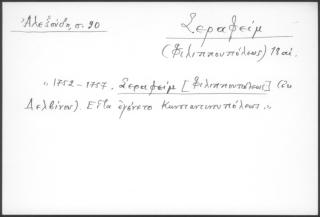 Ἀλεξούδη, σ. 20
Σεραφείμ
(Φιλιππουπόλεως) 18 αἰ.
"1752-1757. Σεραφείμ [Φιλιππουπόλεως] (ἐκ
Δελβίνου). Εἶτα ἐγένετο Κωνσταντινουπόλεως."